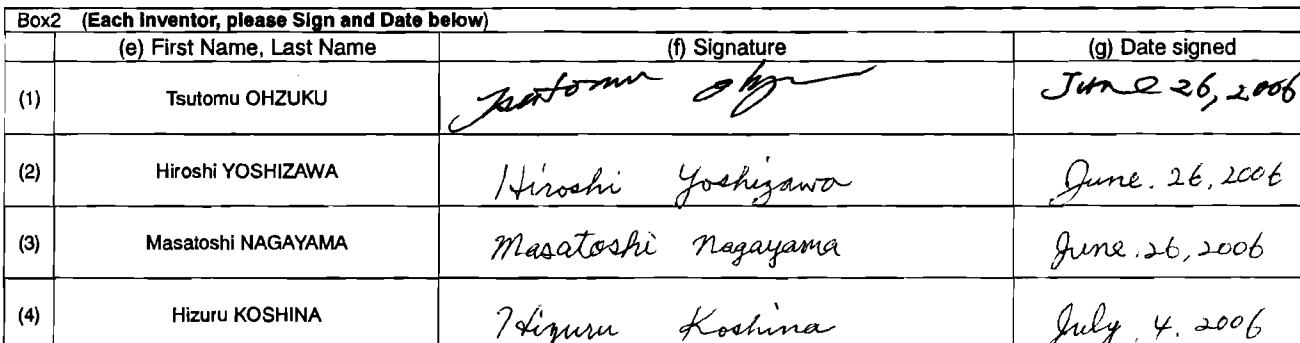 Box2 (Each Inventor, please Sign and Date below)
(e) First Name, Last Name (f) Signature (g) Date signed
(1) Tsutomu OHZUKU Tsutomu June 26, 2006
(2) Hiroshi YOSHIZAWA Hiroshi Yoshizawa June. 26, 2006
(3) Masatoshi NAGAYAMA Masatoshi Nagayama June. 26, 2006
(4) Hizuru KOSHINA Hizuru Koshina July. 4. 2006